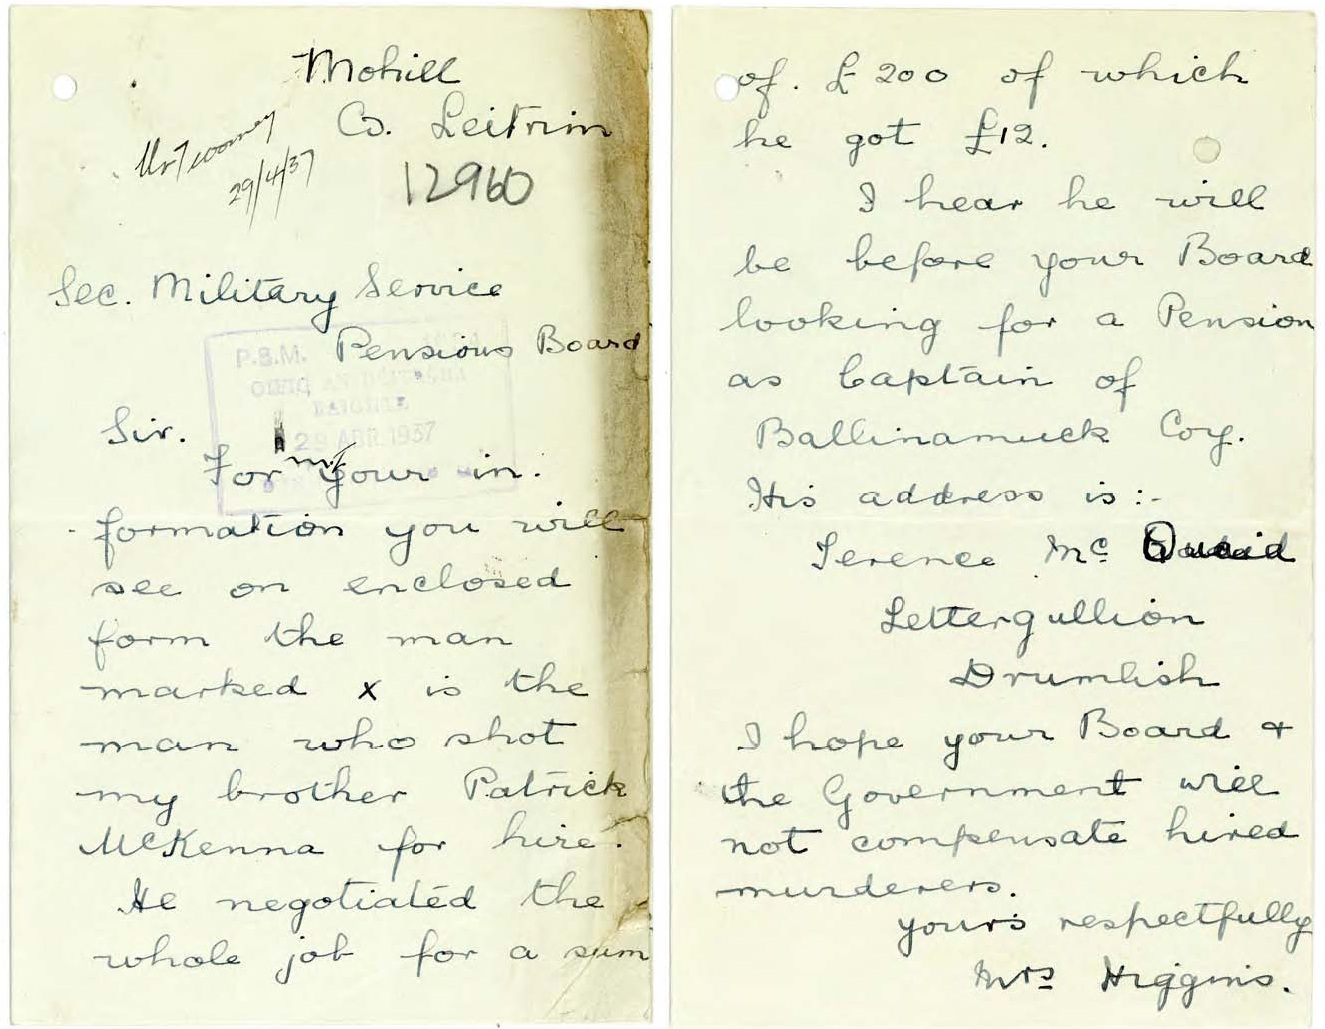 Mohill
Co. Leitrim
Mr Twomey
29/4/37
12960
Sec. Military Service
Pensions Board
P.S.M.
29 ABR 1937
Sir.
For your in.
formation you will
see on enclosed
form the man
marked x is the
man who shot
my brother Patrick
McKenna for hire.
He negotiated the
whole job for a sum
of. £200 of which
he got £12.
I hear he will
be before your Board
looking for a Pension
as Captain of
Ballinamuck Coy.
His address is:-
Terence Mc Quaid
Lettergullion
Drumlish
I hope your Board +
the Government will
not compensate hired
murderers.
yours respectfully
Mrs Higgins.